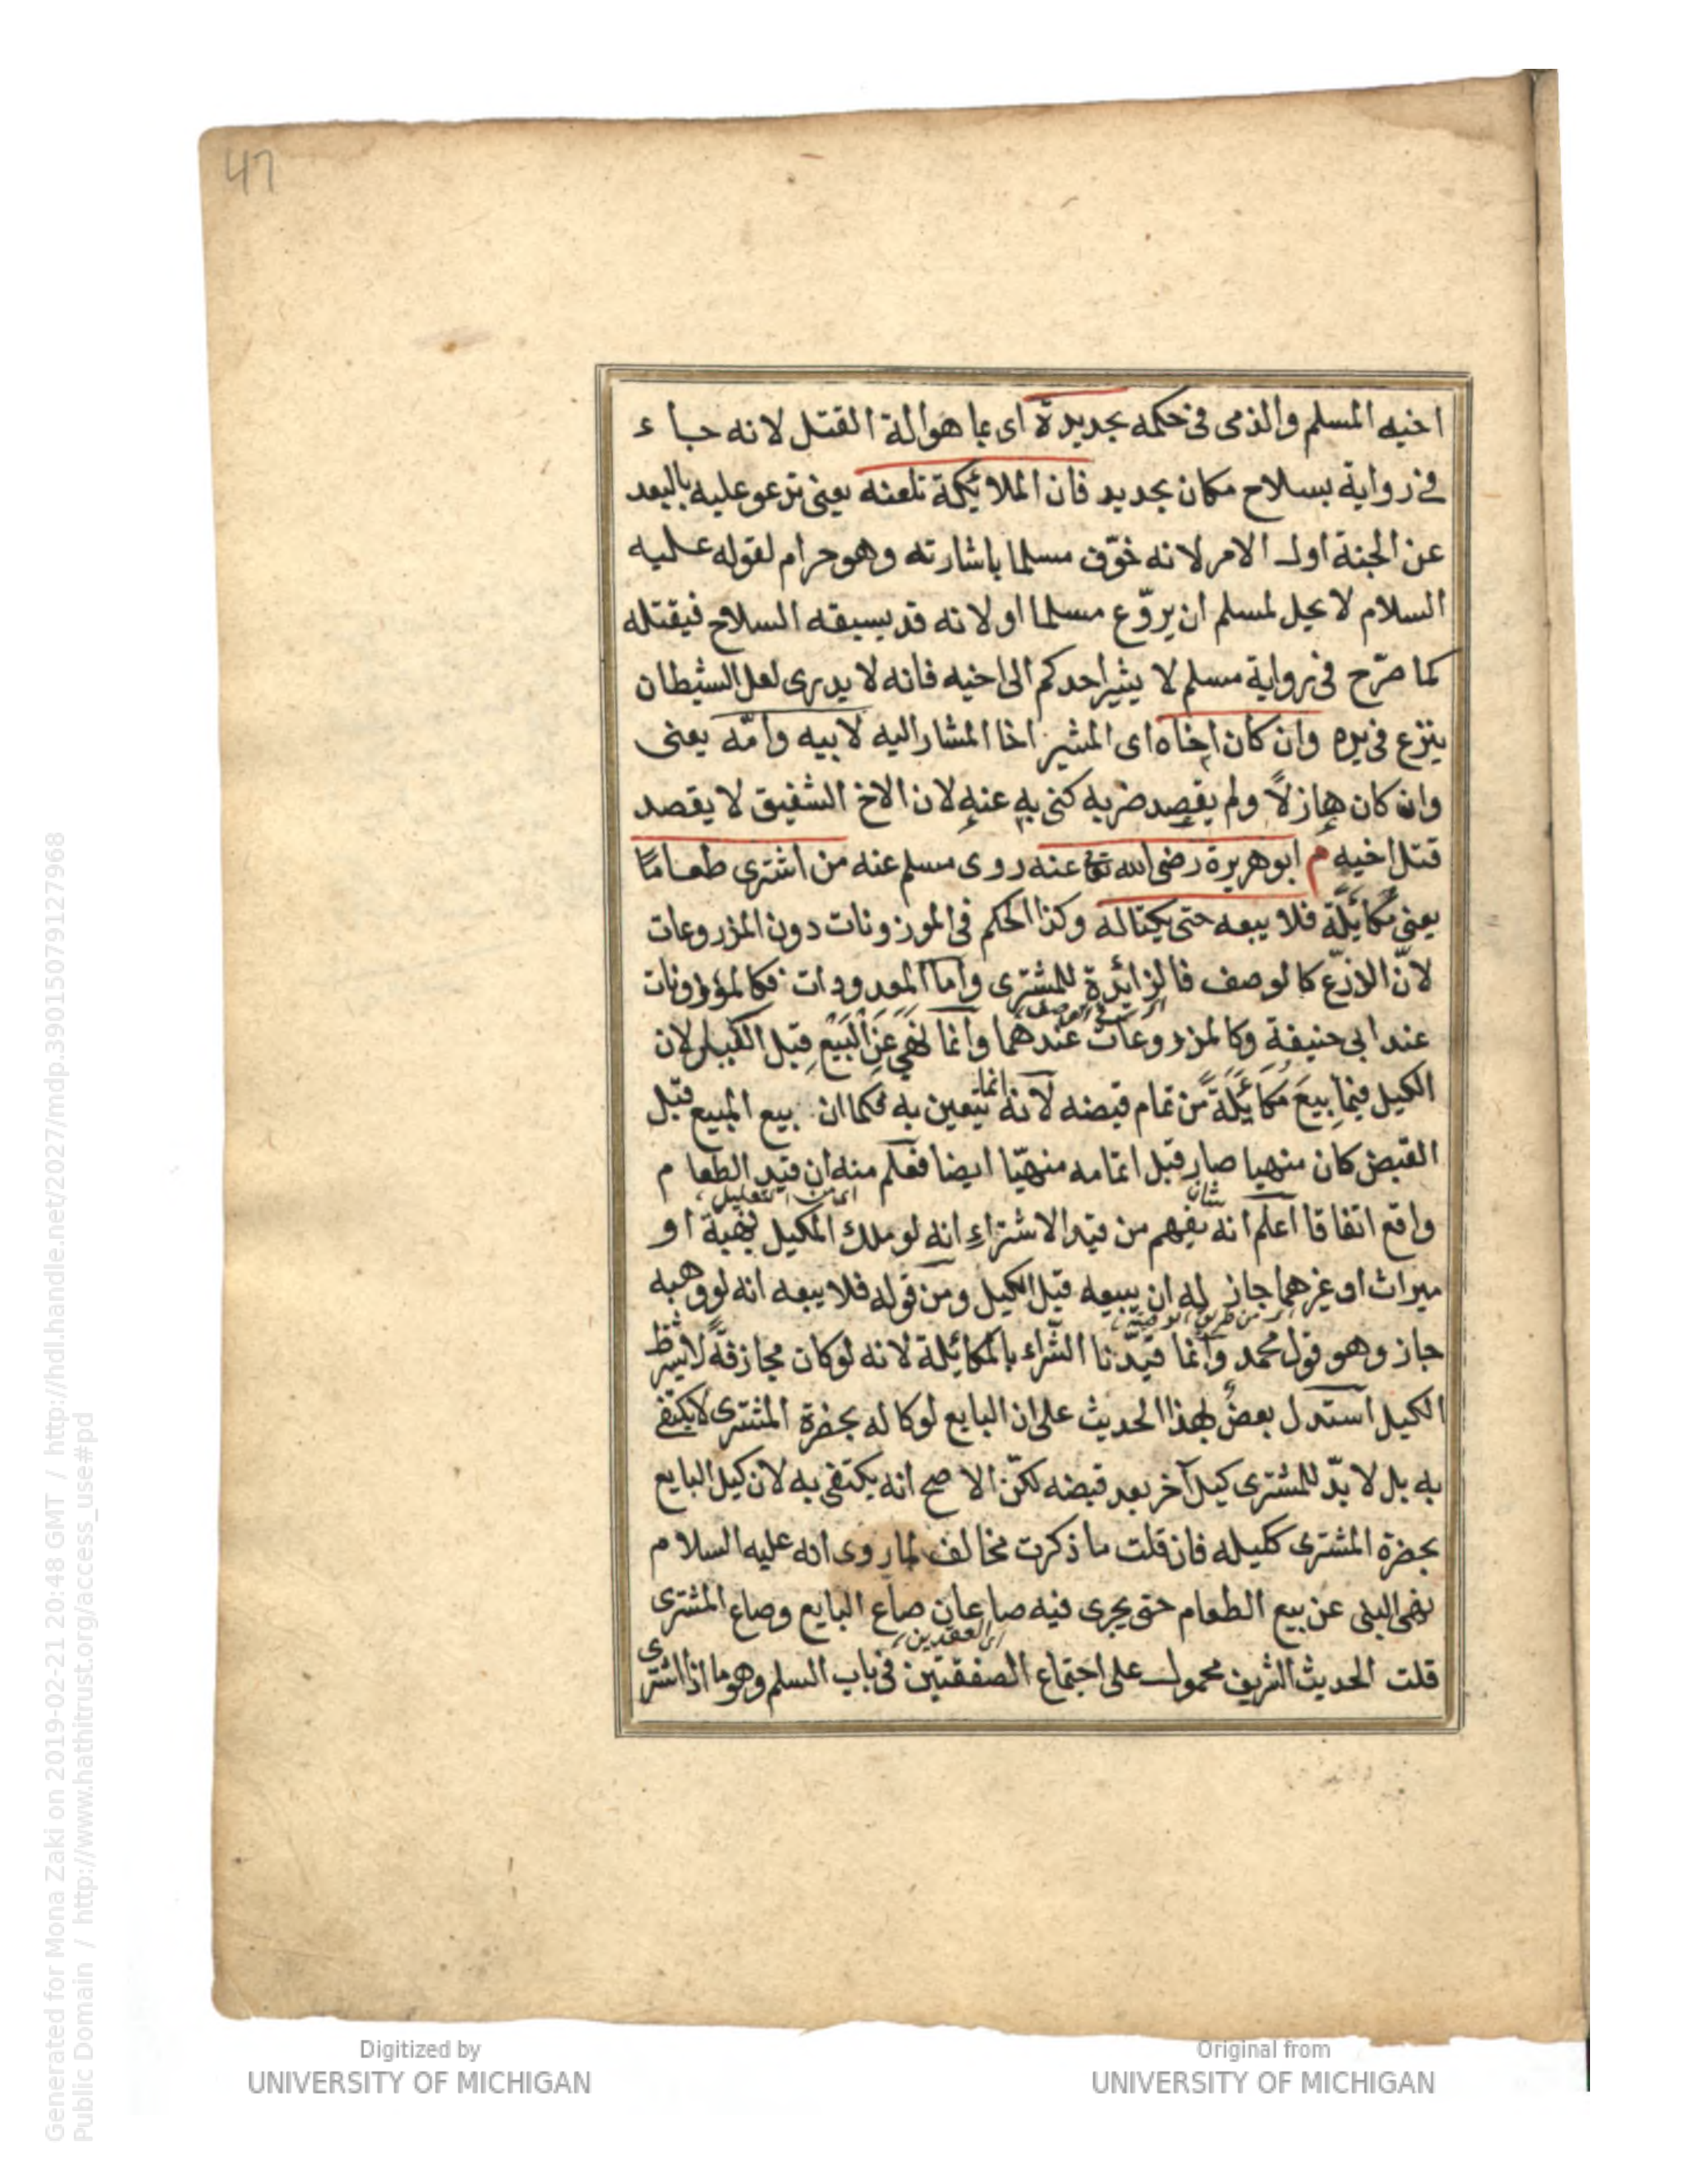 47
اخيه المسلم والذمى فى حكمه بحديدة اى بما هو الة القتل لانه جاء
فى رواية بسلاح مكان بحديد فان الملائكة تلعنه يعنى تدعو عليه بالبعد
عن الجنة اول الامر لانه خوّف مسلما باشارته وهو حرام لقوله عليه
السلام لا يحل لمسلم ان يروّع مسلما او لانه قد يسبقه السلاح فيقتله
كما صرّح فى رواية مسلم لا يشير احدكم الى اخيه فانه لا يدرى لعل الشيطان
ينزع فى يده وان كان اخاه اى المشير اخا المشار اليه لابيه وامّه يعنى
وان كان هازلاً ولم يقصد ضربه كنى به عنه لان الاخ الشفيق لا يقصد
قتل اخيه م ابو هريرة رضى الله تع عنه روى مسلم عنه من اشترى طعامًا
يعنى مكائلة فلا يبعه حتى يكتاله وكذا الحكم فى الموزونات دون المذروعات
لانّ الذرع كالوصف فالزائدة للمشترى واما المعدودات فكالموزونات
عند ابى حنيفة وكالمذروعات عندهما وانما نهى عن البيع قبل الكيل لان
الكيل فيما بيع مكائلة من تمام قبضه لانه انما يتعين به فكما ان بيع المبيع قبل
القبض كان منهيا صار قبل اتمامه منهيّا ايضا فعلم منه ان قيد الطعام
اى من التعليل
واقع اتفاقا اعلم انه يفهم من قيد الاشتراء انه لو ملك المكيل بهبة او
ميراث او غيرهما جاز له ان يبيعه قبل الكيل ومن قوله فلا يبعه انه لو وهبه
جاز وهو قول محمد وانما قيّدنا الشراء بالمكائلة لانه لو كان مجازفة لا يشترط
الكيل استدل بعض بهذا الحديث على ان البايع لو كاله بحضرة المشترى لا يكتفى
به بل لا بدّ للمشترى كيل آخر بعد قبضه لكنّ الاصح انه يكتفى به لان كيل البايع
بحضرة المشترى ككيله فان قلت ما ذكرت مخالف لما روى انه عليه السلام
نهى النبى عن بيع الطعام حتى يجرى فيه صاعان صاع البايع وصاع المشترى
اى العقدين
قلت الحديث الشريف محمول على اجتماع الصفقتين فى باب السلم وهو ما اذا اشترى
Digitized by
UNIVERSITY OF MICHIGAN
Original from
UNIVERSITY OF MICHIGAN
Generated for Mona Zaki on 2019-02-21 20:48 GMT / http://hdl.handle.net/2027/mdp.39015079127968
Public Domain / http://www.hathitrust.org/access_use#pd